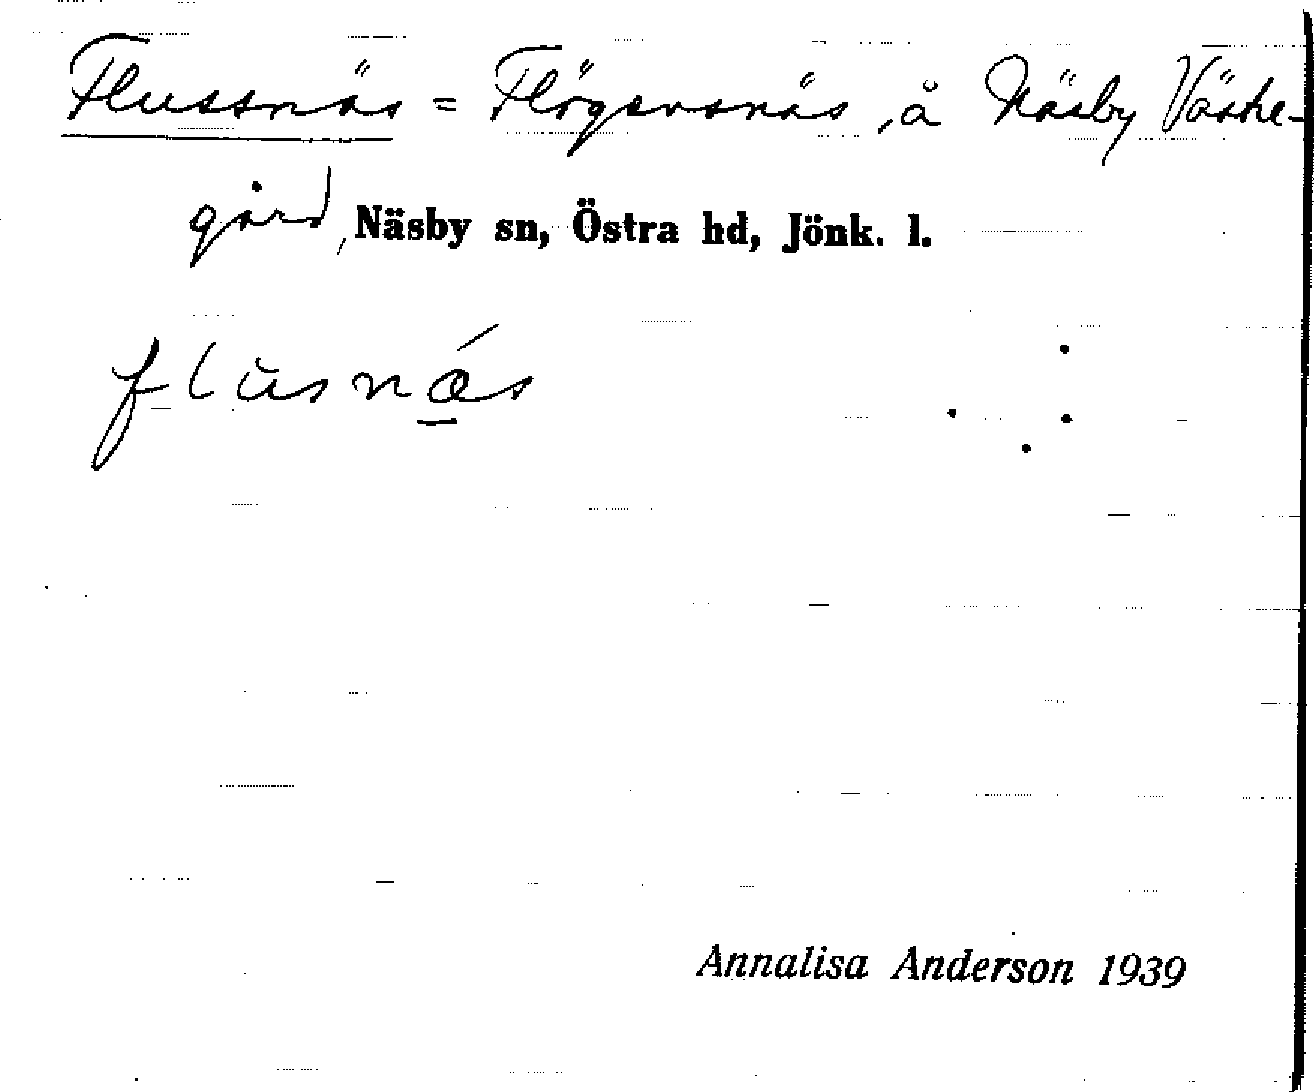 Flussnäs = Flögsersnäs, å Näsby Väste-
gård, Näsby sn, Östra hd, Jönk. l.
flusnä́s
Annalisa Anderson 1939